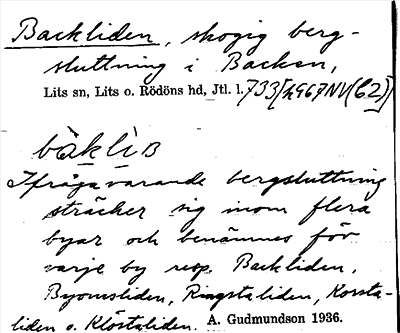 Backliden, skogig berg-
sluttning i Backen,
Lits sn, Lits o. Rödöns hd, Jtl. l. 733[h967NV(C2)]
bäkliʙ
Ifrågavarande bergsluttning
sträcker sig inom flera
byar och benämnes för
varje by resp. Backliden,
Byomsliden, Ringstaliden, Korsta-
liden o. Klöstaliden. A. Gudmundson 1936.